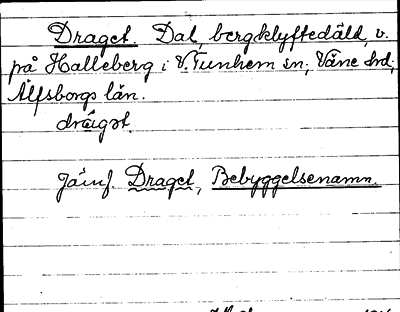 Draget. Dal, bergklyftedäld, v.
på Halleberg i V. Tunhem sn, Väne hrd,
Älfsborgs län.
drágət.
Jämf. Draget, Bebyggelsenamn.